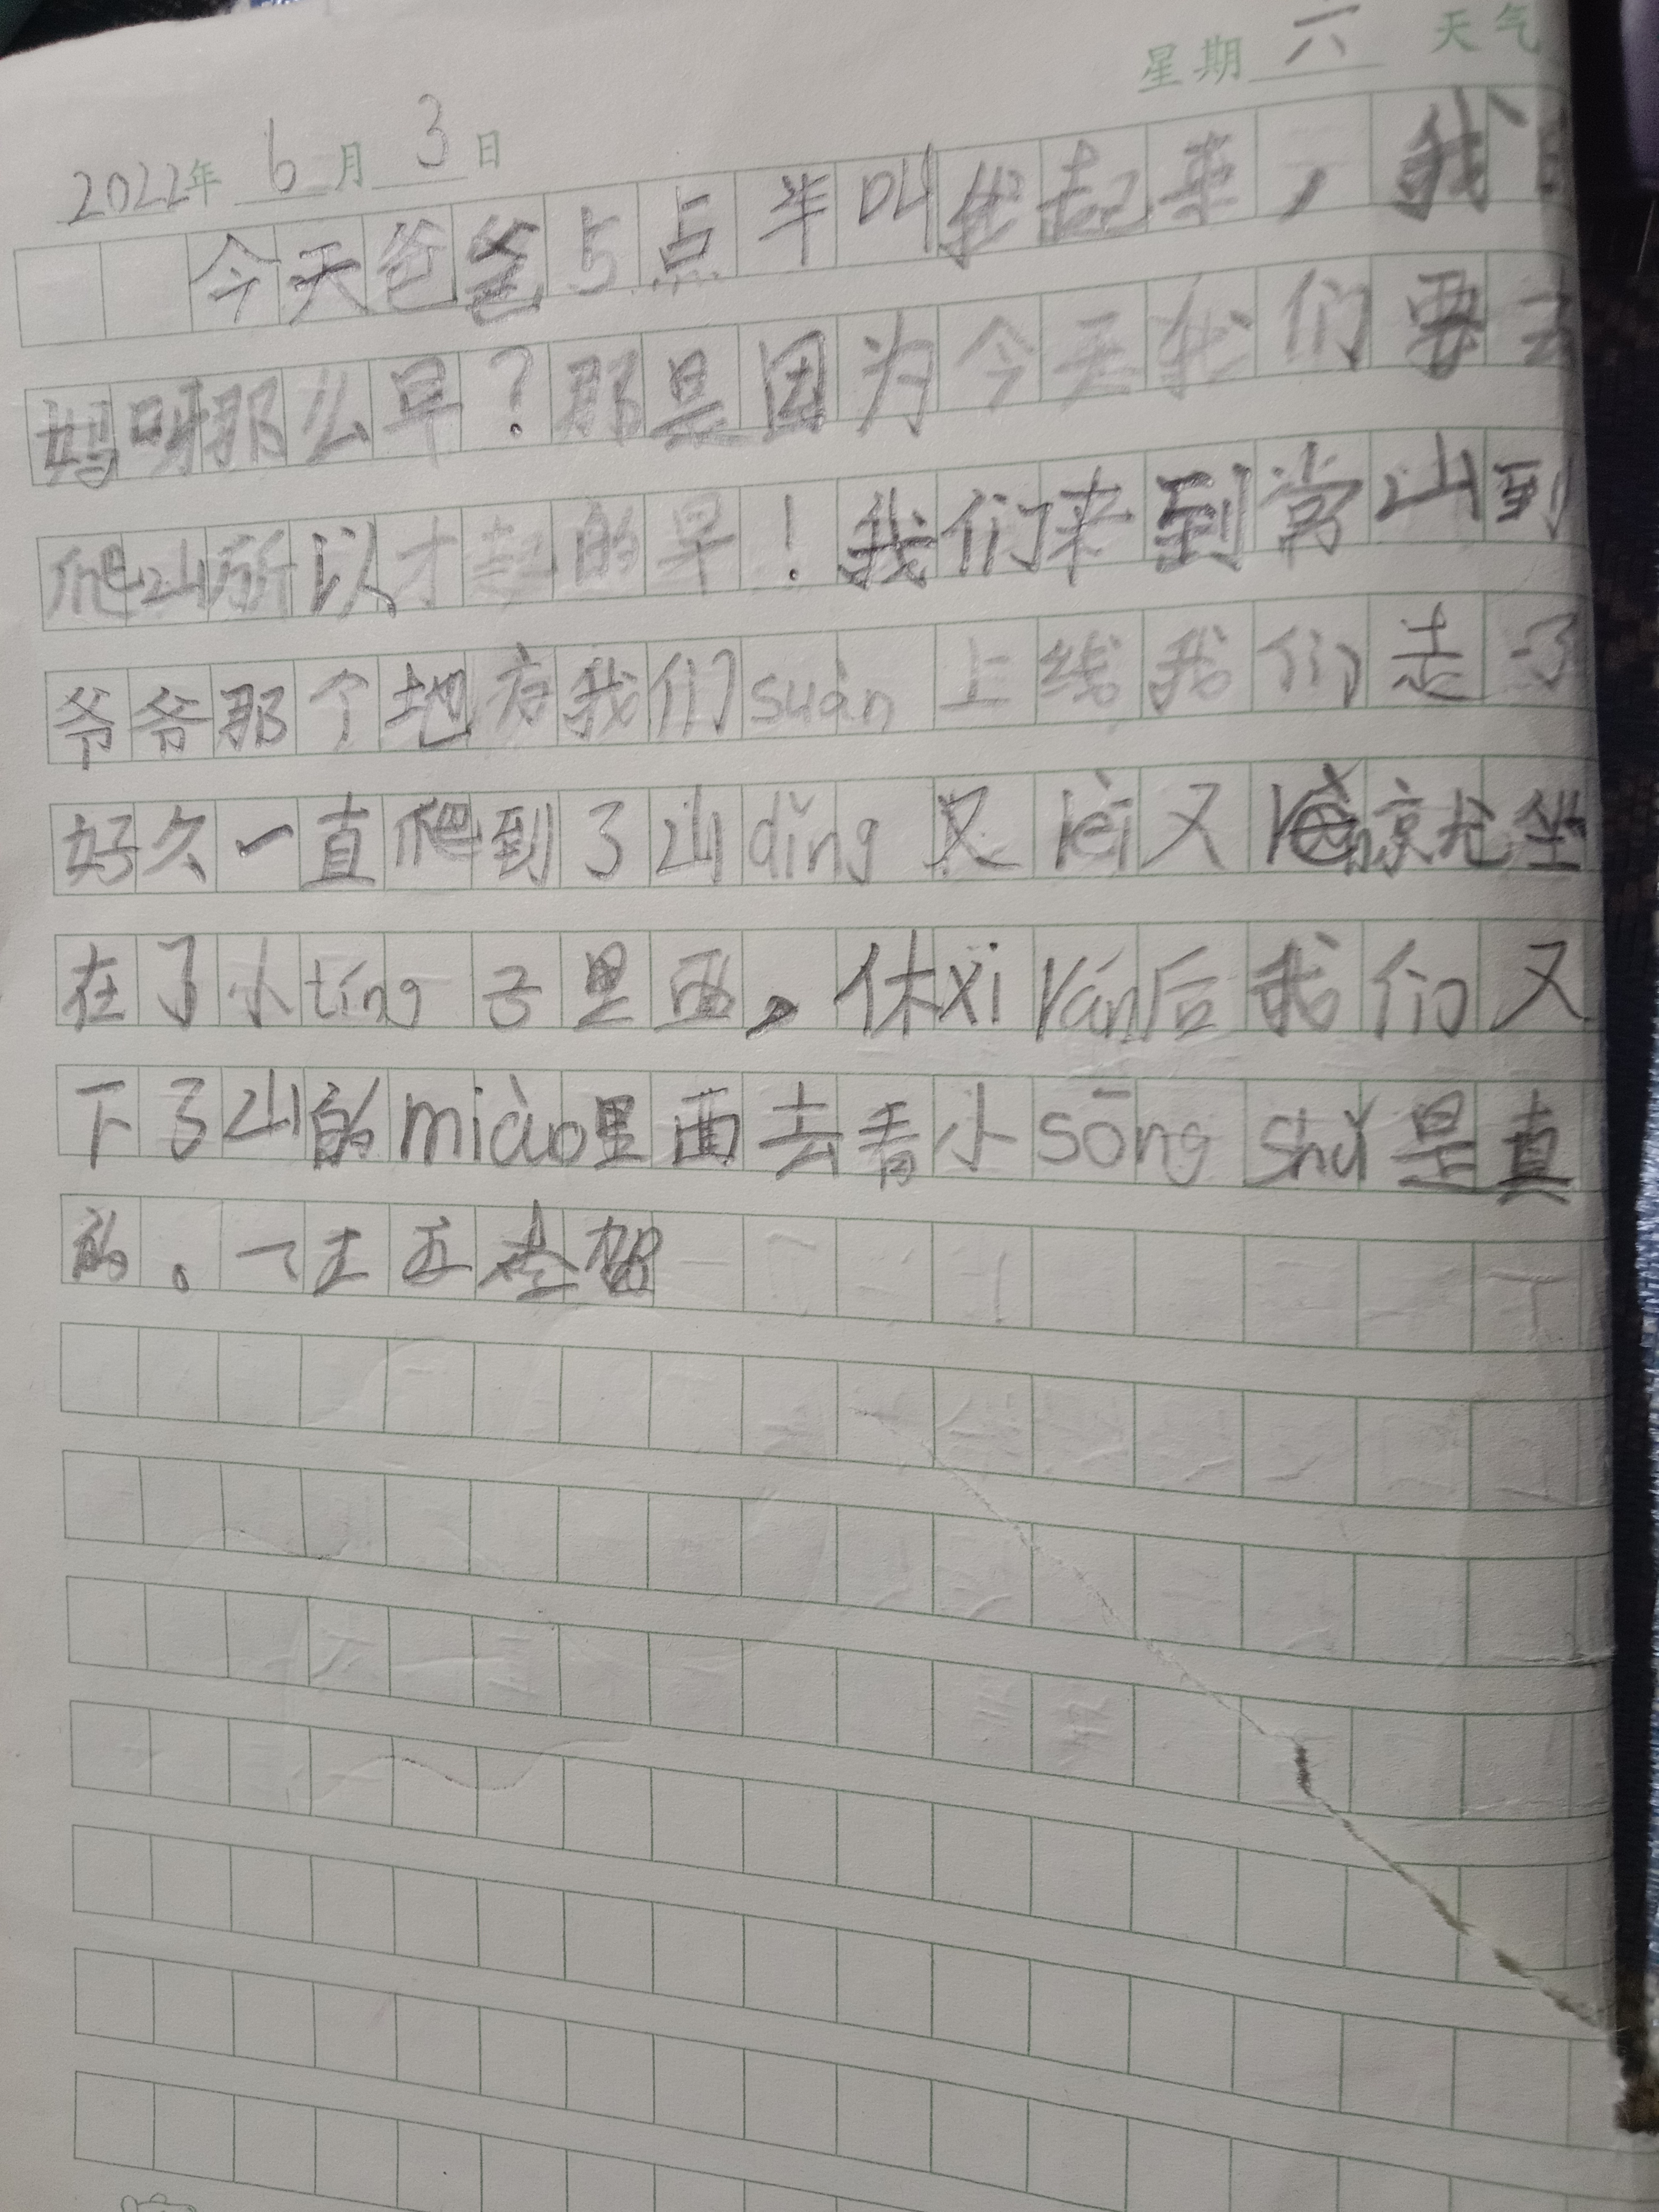 星期 六 天气
2022年 6 月 3 日
今天爸爸5点半叫我起来，我
妈呀那么早？那是因为今天我们要去
爬山所以才起的早！我们来到常山到
爷爷那个地方我们suàn上线我们走了
好久一直爬到了山dǐng又lèi又就坐
在了小tíng子里面，休xi 后我们又
下了山的miào里面去看小sōng shǔ是真
的。